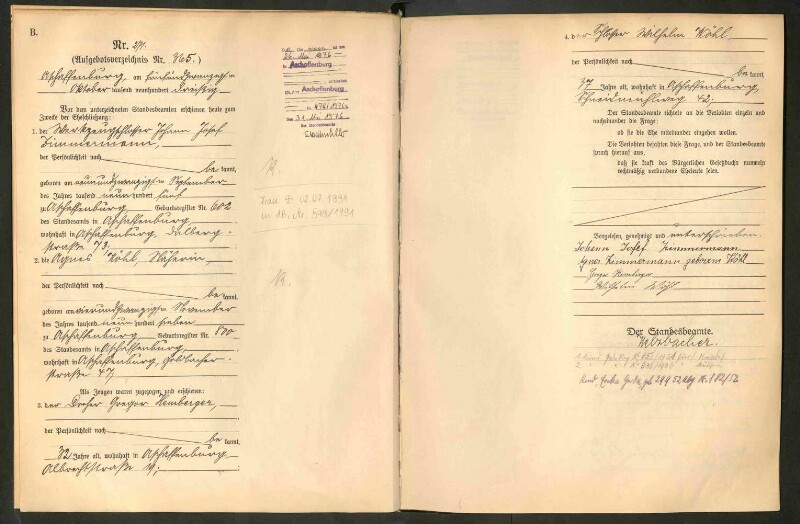 B.
Nr. 271.
(Aufgebotsverzeichnis Nr. 365.)
Aschaffenburg, am fünfundzwanzigsten
Oktober tausend neunhundert dreißig
Vor dem unterzeichneten Standesbeamten erschienen heute zum
Zwecke der Eheschließung:
1. der Werkzeugschlosser Johann Josef
Zimmermann,
der Persönlichkeit nach
be kannt,
geboren am neunundzwanzigsten September
des Jahres tausend neun hundert fünf
zu Aschaffenburg, Geburtsregister Nr. 682
des Standesamts in Aschaffenburg
wohnhaft in Aschaffenburg, Dalberg-
straße 73.
2. die Agnes Köhl, Näherin,
der Persönlichkeit nach
be kannt,
geboren am vierundzwanzigsten November
des Jahres tausend neun hundert sieben
zu Aschaffenburg Geburtsregister Nr. 800
des Standesamts in Aschaffenburg,
wohnhaft in Aschaffenburg, Goldbacher-
straße 47,
Als Zeugen waren zugezogen und erschienen:
3. der Dreher Gregor Hemberger,
der Persönlichkeit nach
be kannt,
32 Jahre alt, wohnhaft in Aschaffenburg
Albrechtstraße
26. Mai 1976
Aschaffenburg
Aschaffenburg
31. Mai 1976
Frau † 02.07.1991
Nr. 599/1991
4. der Schlosser Wilhelm Köhl
der Persönlichkeit nach
be kannt,
37 Jahre alt, wohnhaft in Aschaffenburg,
42.
Der Standesbeamte richtete an die Verlobten einzeln und
nacheinander die Frage:
ob sie die Ehe miteinander eingehen wollen.
Die Verlobten bejahten diese Frage, und der Standesbeamte
sprach hierauf aus,
daß sie kraft des Bürgerlichen Gesetzbuchs nunmehr
rechtmäßig verbundene Eheleute seien.
Vorgelesen, genehmigt und unterschrieben.
Johann Josef Zimmermann
Agnes Zimmermann geborene Köhl
Gregor Hemberger
Wilhelm Köhl
Der Standesbeamte.